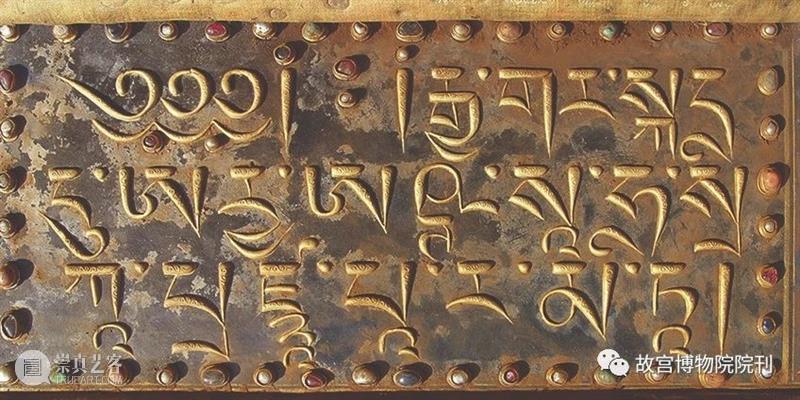 ༄༅༅། །རྒྱ་གར་སྐད་
དུ་ཨཱརྱ་ཨ་ཥྚ་སཱ་ཧ་སྲི
ཀཱ་པྲ་ཛྙཱ་པཱ་ར་མི་ཏཱ།
崇真艺客
TRUEART.COM
故宫博物院院刊